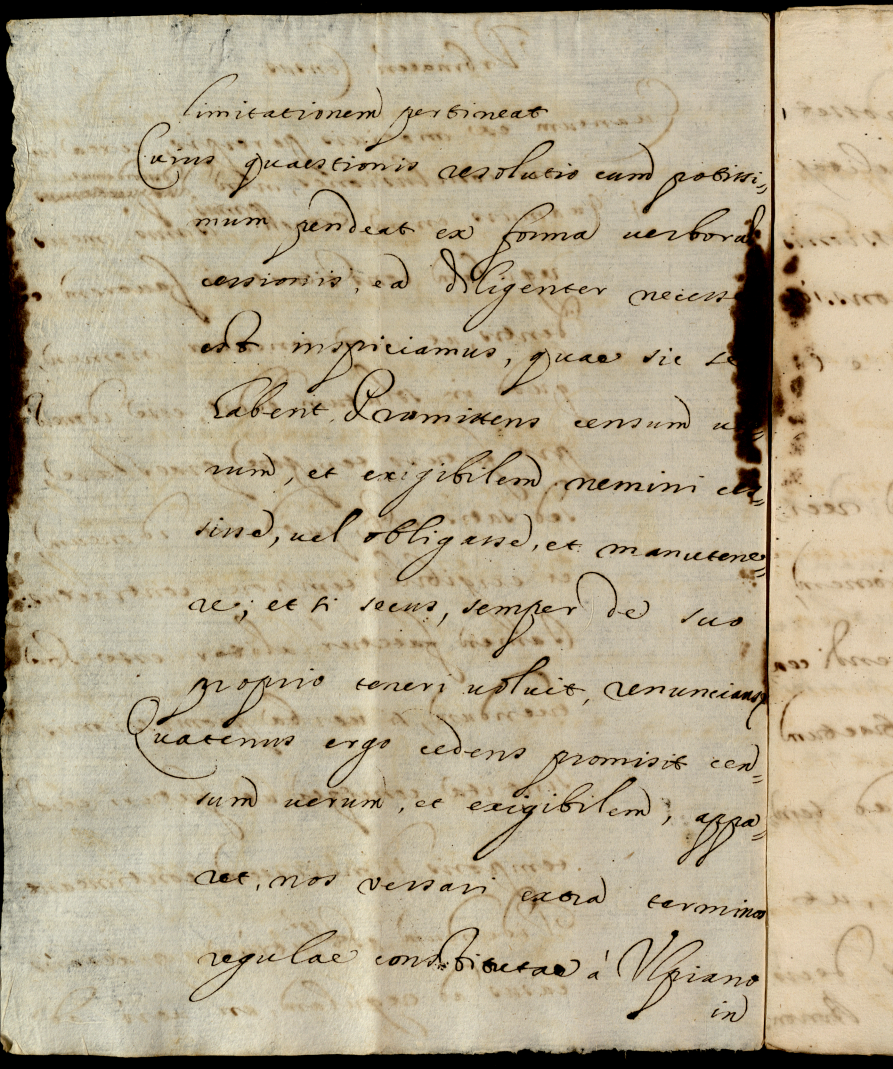 limitationem pertineat
Cuius quaestionis resolutio cum potissi„
mum pendeat ex forma uerborū
cessionis, ea diligenter necess
est inspiciamus, quae sic se
habent. Promittens censum ue„
rum, et exigibilem nemini ces„
sisse, uel obligasse, et manutene„
re; et si secus, semper de suo
proprio teneri uoluit, renuncians
Quatenus ergo cedens promisit cen„
sum uerum, et exigibilem, appa„
ret, nos versari extra terminos
regulae constitutae á Vlpiano
in